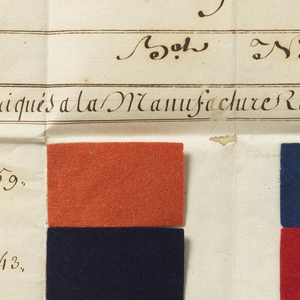 Bot. N
iqués a la Manufacture R
59.
43.